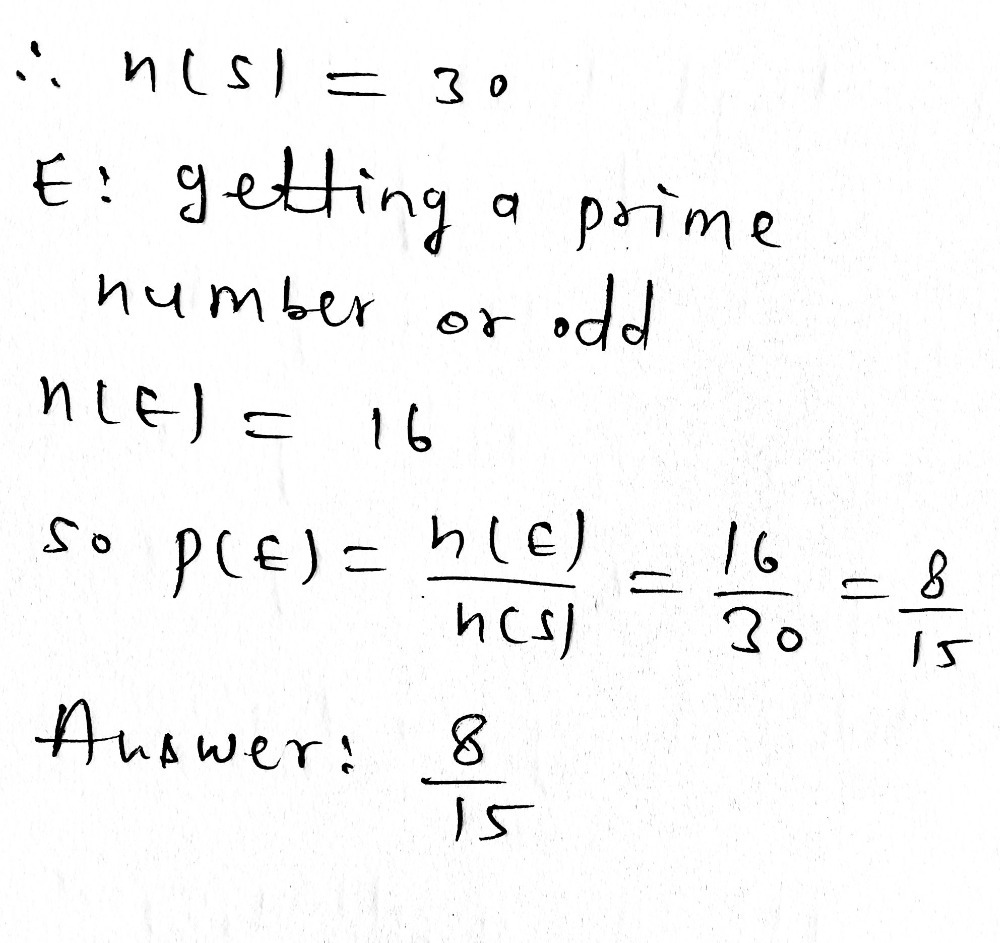 ∴ n(S) = 30
E: getting a prime
number or odd
n(E) = 16
so P(E) = n(E)/n(S) = 16/30 = 8/15
Answer: 8/15